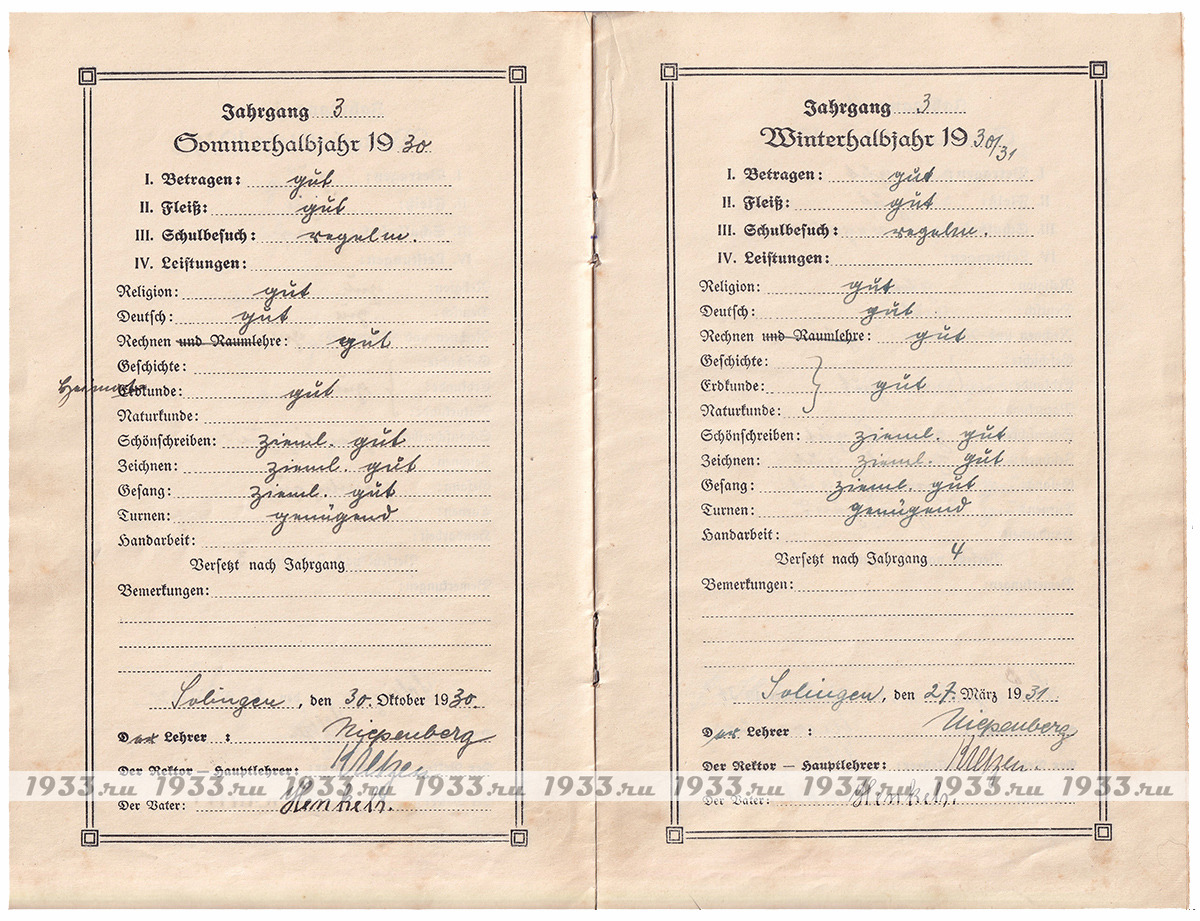 Jahrgang 3
Sommerhalbjahr 19 30.
I. Betragen: gut
II. Fleiß: gut
III. Schulbesuch: regelm.
IV. Leistungen:
Religion: gut
Deutsch: gut
Rechnen und Raumlehre: gut
Geschichte:
Heimat Erdkunde: gut
Naturkunde:
Schönschreiben: zieml. gut
Zeichnen: zieml. gut
Gesang: zieml. gut
Turnen: genügend
Handarbeit:
Versetzt nach Jahrgang
Bemerkungen:
Solingen, den 30. Oktober 1930.
Der Lehrer: Niepenberg
Der Rektor — Hauptlehrer:
Der Vater:
Jahrgang 3
Winterhalbjahr 19 30/31
I. Betragen: gut
II. Fleiß: gut
III. Schulbesuch: regelm.
IV. Leistungen:
Religion: gut
Deutsch: gut
Rechnen und Raumlehre: gut
Geschichte:
Erdkunde: gut
Naturkunde:
Schönschreiben: zieml. gut
Zeichnen: zieml. gut
Gesang: zieml. gut
Turnen: genügend
Handarbeit:
Versetzt nach Jahrgang 4
Bemerkungen:
Solingen, den 27. März 1931.
Der Lehrer: Niepenberg
Der Rektor — Hauptlehrer:
Der Vater:
1933.ru 1933.ru 1933.ru 1933.ru 1933.ru 1933.ru 1933.ru 1933.ru